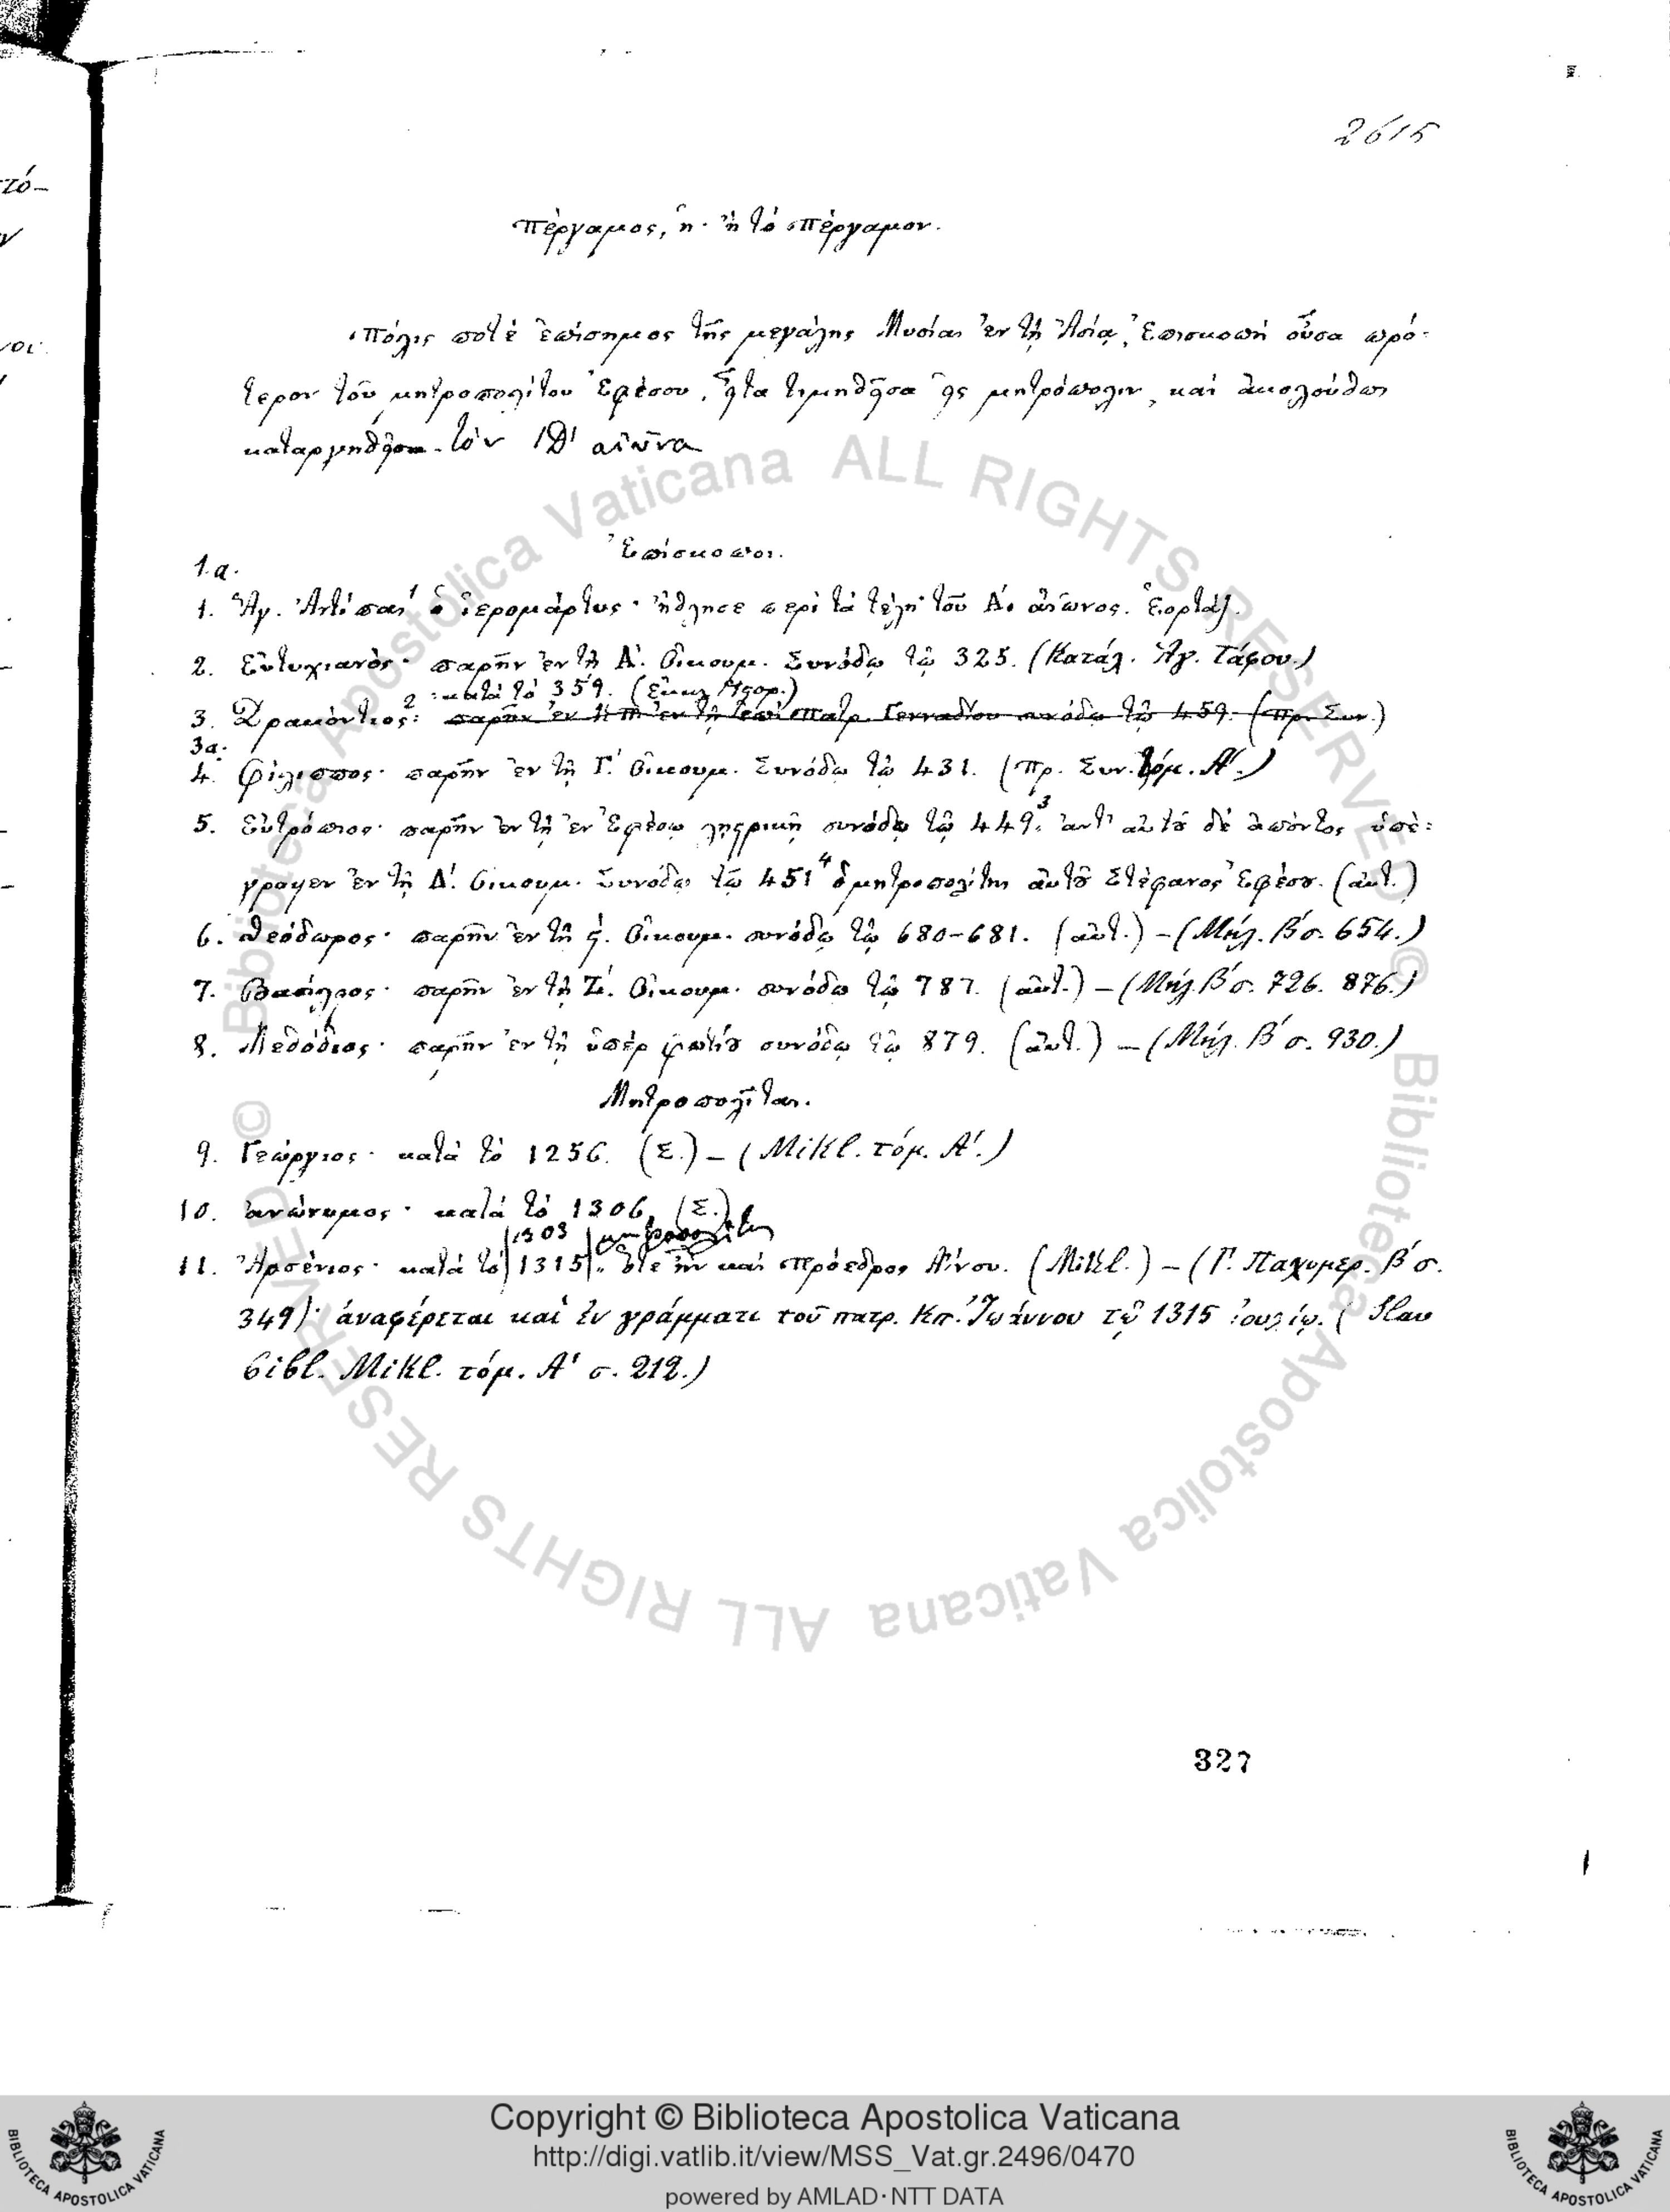 2615
Πέργαμος, ἡ· ἢ τὸ Πέργαμον.
Πόλις ποτὲ ἐπίσημος τῆς μεγάλης Μυσίας ἐν τῇ Ἀσίᾳ, Ἐπισκοπὴ οὖσα πρό-
τερον τοῦ μητροπολίτου Ἐφέσου, εἶτα τιμηθεῖσα εἰς μητρόπολιν, καὶ ἀκολούθως
καταργηθεῖσα τὸν ΙΔ' αἰῶνα
Ἐπίσκοποι.
1.α.
1. Ἅγ. Ἀντίπας ὁ ἱερομάρτυς· ἤθλησε περὶ τὰ τέλη τοῦ Α. αἰῶνος.
2. Εὐτυχιανὸς· παρῆν ἐν τῇ Α'. Οἰκουμ. Συνόδῳ τῷ 325. (Κατάλ. Ἁγ. Τάφου.)
2 κατὰ τὸ 359.
3. Δρακόντιος: παρῆν ἐν τῇ πατρ. Γενναδίου συνόδῳ τῷ 459. (Πρ. Συν.)
3α.
4. Φίλιππος· παρῆν ἐν τῇ Γ'. Οἰκουμ. Συνόδῳ τῷ 431. (Πρ. Συν. τόμ. Α'.)
5. Εὐτρόπιος· παρῆν ἐν τῇ ἐν Ἐφέσῳ λῃστρικῇ συνόδῳ τῷ 449.3 ἀντ' αὐτοῦ δὲ ἀπόντος ὑπέ=
γραψεν ἐν τῇ Δ'. Οἰκουμ. Συνόδῳ τῷ 451 4 ὁ μητροπολίτης αὐτοῦ Στέφανος Ἐφέσου. (αὐτ.)
6. Θεόδωρος· παρῆν ἐν τῇ ϛ'. Οἰκουμ. συνόδῳ τῷ 680-681. (αὐτ.) – (Μήλ. Β' σ. 654.)
7. Βασίλειος· παρῆν ἐν τῇ Ζ'. Οἰκουμ. συνόδῳ τῷ 787. (αὐτ.) – (Μήλ. Β' σ. 726. 876.)
8. Μεθόδιος· παρῆν ἐν τῇ ὑπὲρ Φωτίου συνόδῳ τῷ 879. (αὐτ.) – (Μήλ. Β' σ. 930.)
Μητροπολῖται.
9. Γεώργιος· κατὰ τὸ 1256. (Σ.) – (Mikl. τόμ. Α'.)
10. ἀνώνυμος· κατὰ τὸ 1306. (Σ.)
1303 μητροπολίτης
11. Ἀρσένιος· κατὰ τὸ 1315. ὅτε ἦν καὶ πρόεδρος Αἴνου. (Mikl.) – (Γ. Παχυμερ. Β' σ.
349)· ἀναφέρεται καὶ ἐν γράμματι τοῦ πατρ. Κπ. Ἰωάννου τῷ 1315 ἰουλίῳ. (Slav
bibl. Mikl. τόμ. Α' σ. 212.)
327
© Biblioteca Apostolica Vaticana ALL RIGHTS RESERVED
© Biblioteca Apostolica Vaticana ALL RIGHTS RESERVED
Copyright © Biblioteca Apostolica Vaticana
http://digi.vatlib.it/view/MSS_Vat.gr.2496/0470
powered by AMLAD·NTT DATA
BIBLIOTECA APOSTOLICA VATICANA
BIBLIOTECA APOSTOLICA VATICANA